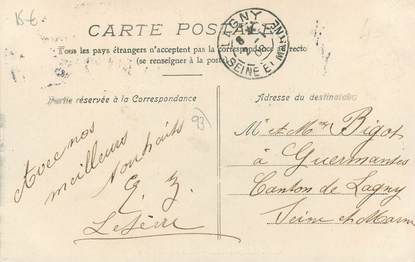 15€
CARTE POSTALE
Tous les pays étrangers n'acceptent pas la correspondance au recto
(se renseigner à la poste)
LAGNY
SEINE ET MARNE
Partie réservée à la Correspondance
Adresse du destinataire
Avec nos
meilleurs
Souhaits
93
M. et Mme Bigot
à Guermantes
Canton de Lagny
Seine et Marne